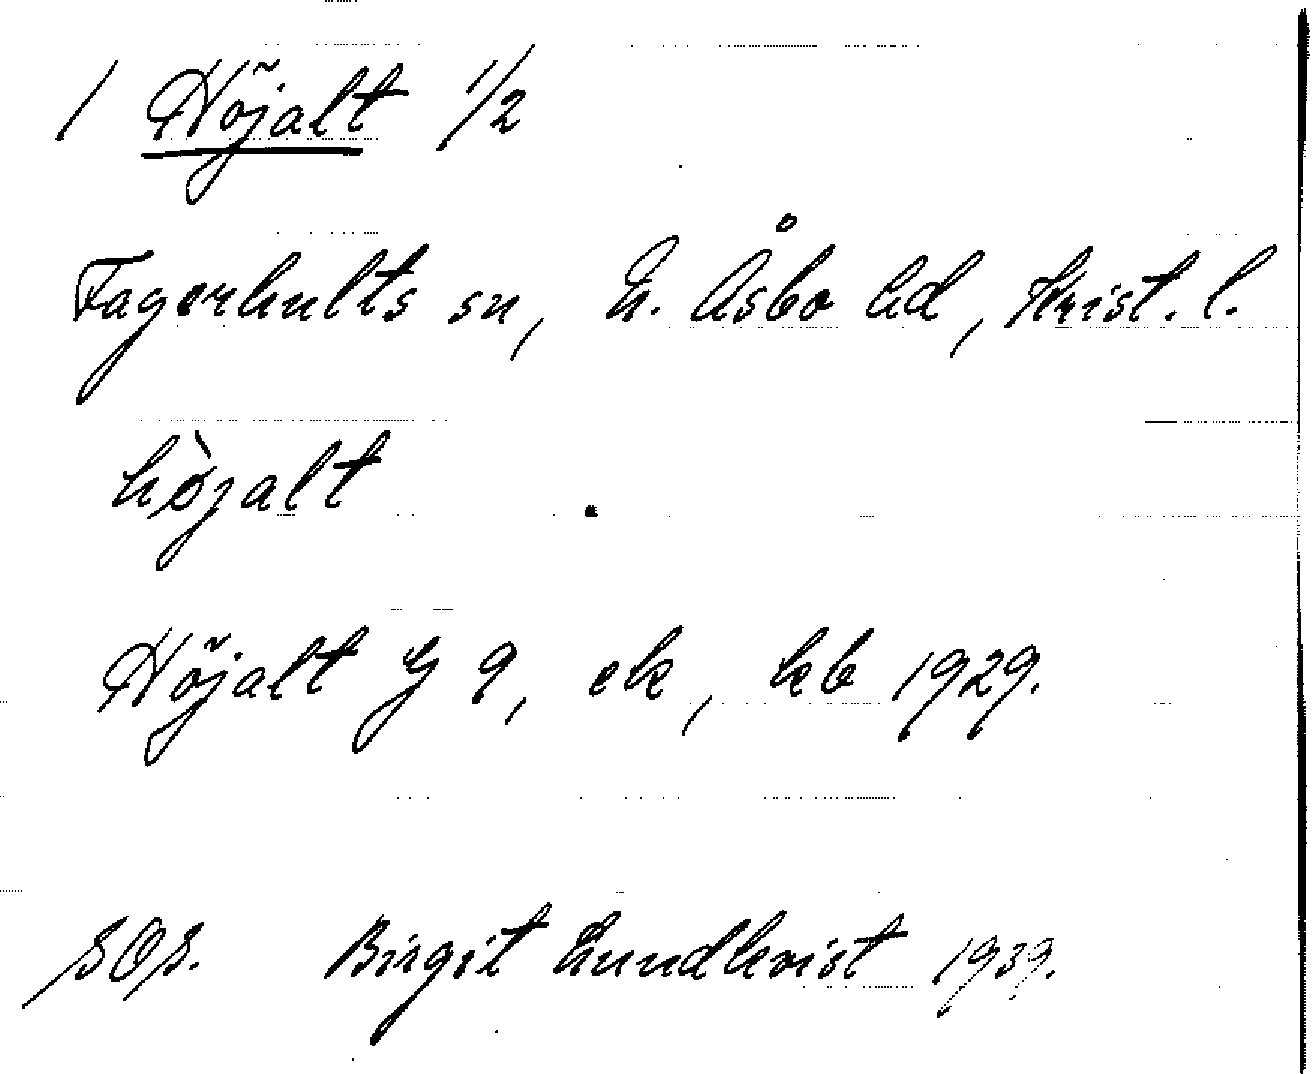 1 Höjalt 1/2
Fagerhults sn, N. Åsbo hd, Krist. l.
hø̀jalt
Höjalt G 9, ek, kb 1929.
SOS. Birgit Lundkvist 1939.